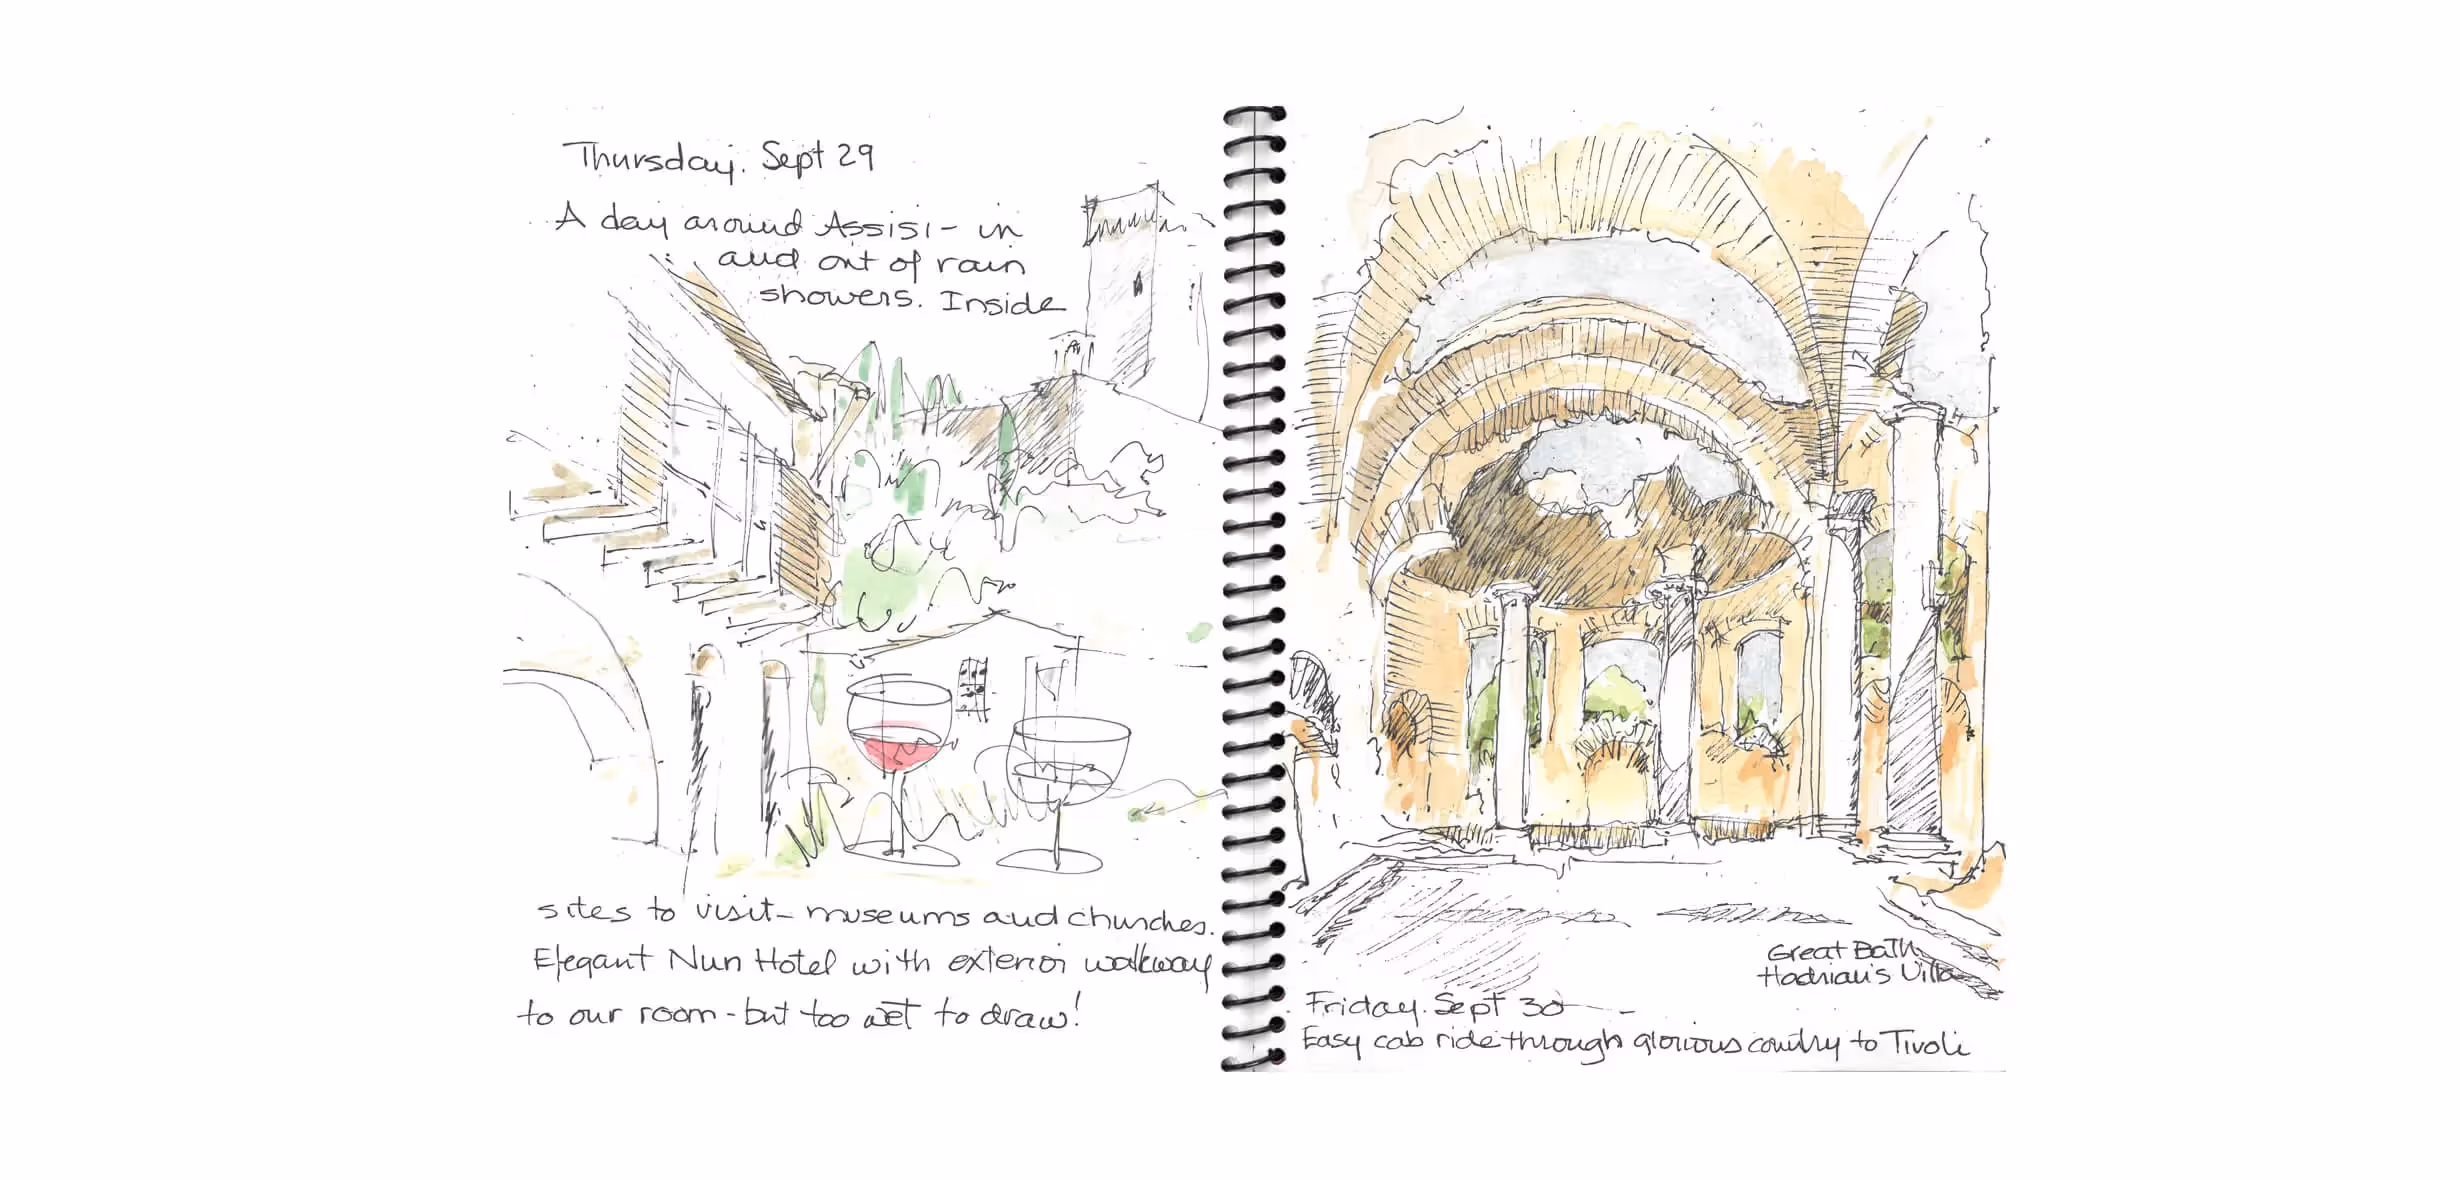 Thursday. Sept 29
A day around Assisi - in
and out of rain
showers. Inside
sites to visit - museums and churches.
Elegant Nun Hotel with exterior walkway
to our room - but too wet to draw!
Great Bath
Hadrian's Villa
Friday. Sept 30 -
Easy cab ride through glorious country to Tivoli